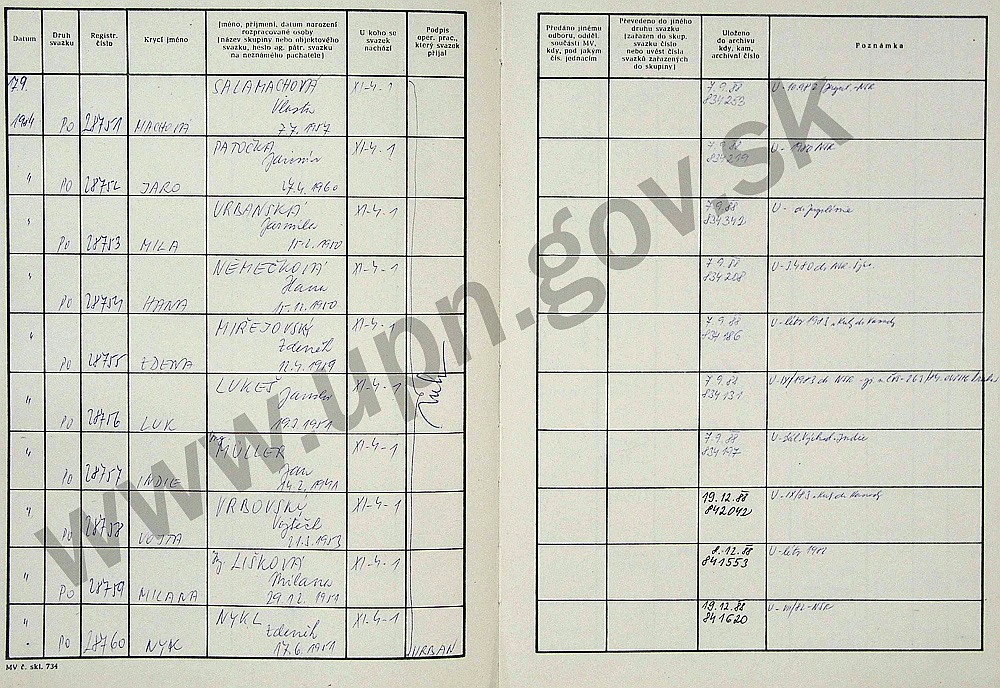 Datum
Druh svazku
Registr. číslo
Krycí jméno
Jméno, příjmení, datum narození
rozpracované osoby
(název skupiny nebo objektového
svazku, heslo ag. pátr. svazku
na neznámého pachatele)
U koho se
svazek
nachází
Podpis
oper. prac.,
který svazek
přijal
Předáno jinému
odboru, odděl.
součásti MV,
kdy, pod jakým
čís. jednacím
Převedeno do jiného
druhu svazku
(zařazen do skup.
svazku číslo
nebo uvést čísla
svazků zařazených
do skupiny)
Uloženo
do archivu
kdy, kam,
archivní číslo
Poznámka
SALAMACHOVÁ XI-4-1 7.9.88
Vlasta 834253
1984 PO 28751 MACHOVÁ 7.7.1957
PATOČKA XI-4-1 7.9.88 U - 1980 NSR
Jaromír 834219
" PO 28752 JARO 27.4.1960
URBANSKÁ XI-4-1 7.9.88 U -
Jarmila 834342
" PO 28753 MILA 15.2.1950
NĚMEČKOVÁ XI-4-1 7.9.88
Hana 834208
" PO 28754 HANA 15.12.1950
MIŘEJOVSKÝ XI-4-1 7.9.88 U - léto 1983
Zdeněk 834186
" PO 28755 ZDENA 12.4.1949
LUKEŠ XI-4-1 7.9.88 U - IX/1983 do NSR
Jaroslav 834131
" PO 28756 LUK 19.3.1951
Ing. MÜLLER XI-4-1 7.9.88 Indie
Jan 834177
" PO 28757 INDIE 14.2.1941
VRBOVSKÝ XI-4-1 19.12.88 U - IX/83
Vojtěch 842042
" PO 28758 VOJTA 21.3.1953
Ing. LIŠKOVÁ XI-4-1 8.-12.88 U - léto 1982
Milana 841553
" PO 28759 MILANA 29.12.1951
NYKL XI-4-1 19.12.88 NSR
Zdeněk 841620
" PO 28760 NYK 17.6.1951 URBAN
MV č. skl. 734
www.upn.gov.sk